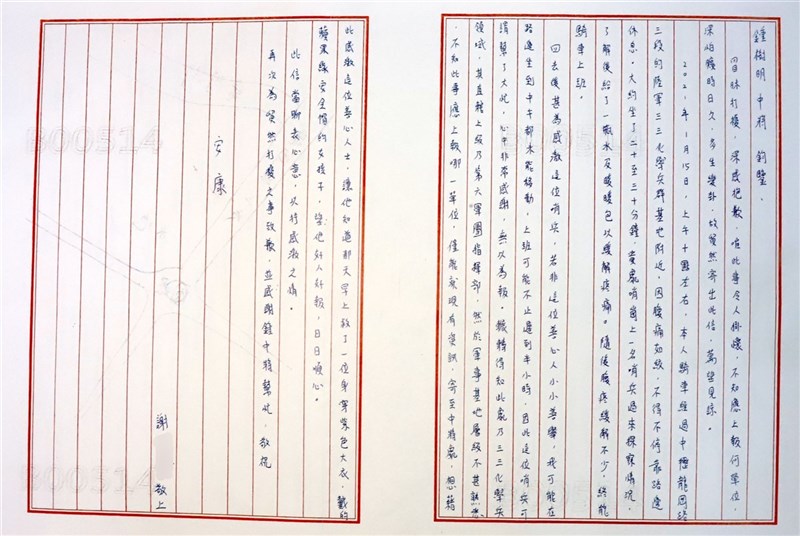 鍾樹明 中將 鈞鑒.
冒昧打擾,深感抱歉,唯此事令人掛懷,不知應上報何單位,
深怕曠時日久,易生變卦,故貿然寄出此信,萬望見諒。
2021年1月15日,上午十點左右,本人騎車經過中壢龍岡路
三段的陸軍三三化學兵群基地附近,因腹痛如絞,不得不停靠路邊
休息。大約坐了二十至三十分鐘,貴處哨崗上一名哨兵過來探察情況,
了解後給了一瓶水及暖暖包以緩解疼痛。隨後腹疼緩解不少,終能
騎車上班。
回去後甚為感激這位哨兵,若非這位善心人小小善舉,我可能在
路邊坐到中午都未能移動,上班可能不止遲到半小時,因此這位哨兵可
謂幫了大忙,心中非常感謝,無以為報。輾轉得知此處乃三三化學兵
領域,其直轄上級乃第六軍團指揮部,然於軍事基地層級不甚熟悉
,不知此事應上報哪一單位,僅能就現有資訊,寄至中將處,想藉
此感激這位善心人士,讓他知道那天早上救了一位身穿紫色大衣,戴粉
蘋果綠安全帽的女孩子,望他好人好報,日日順心。
此信當聊表心意,以抒感激之情。
再次為貿然打擾之事致歉,並感謝鍾中將幫忙,敬祝
安康
謝 敬上
B00514
B00514
B00514
B00514